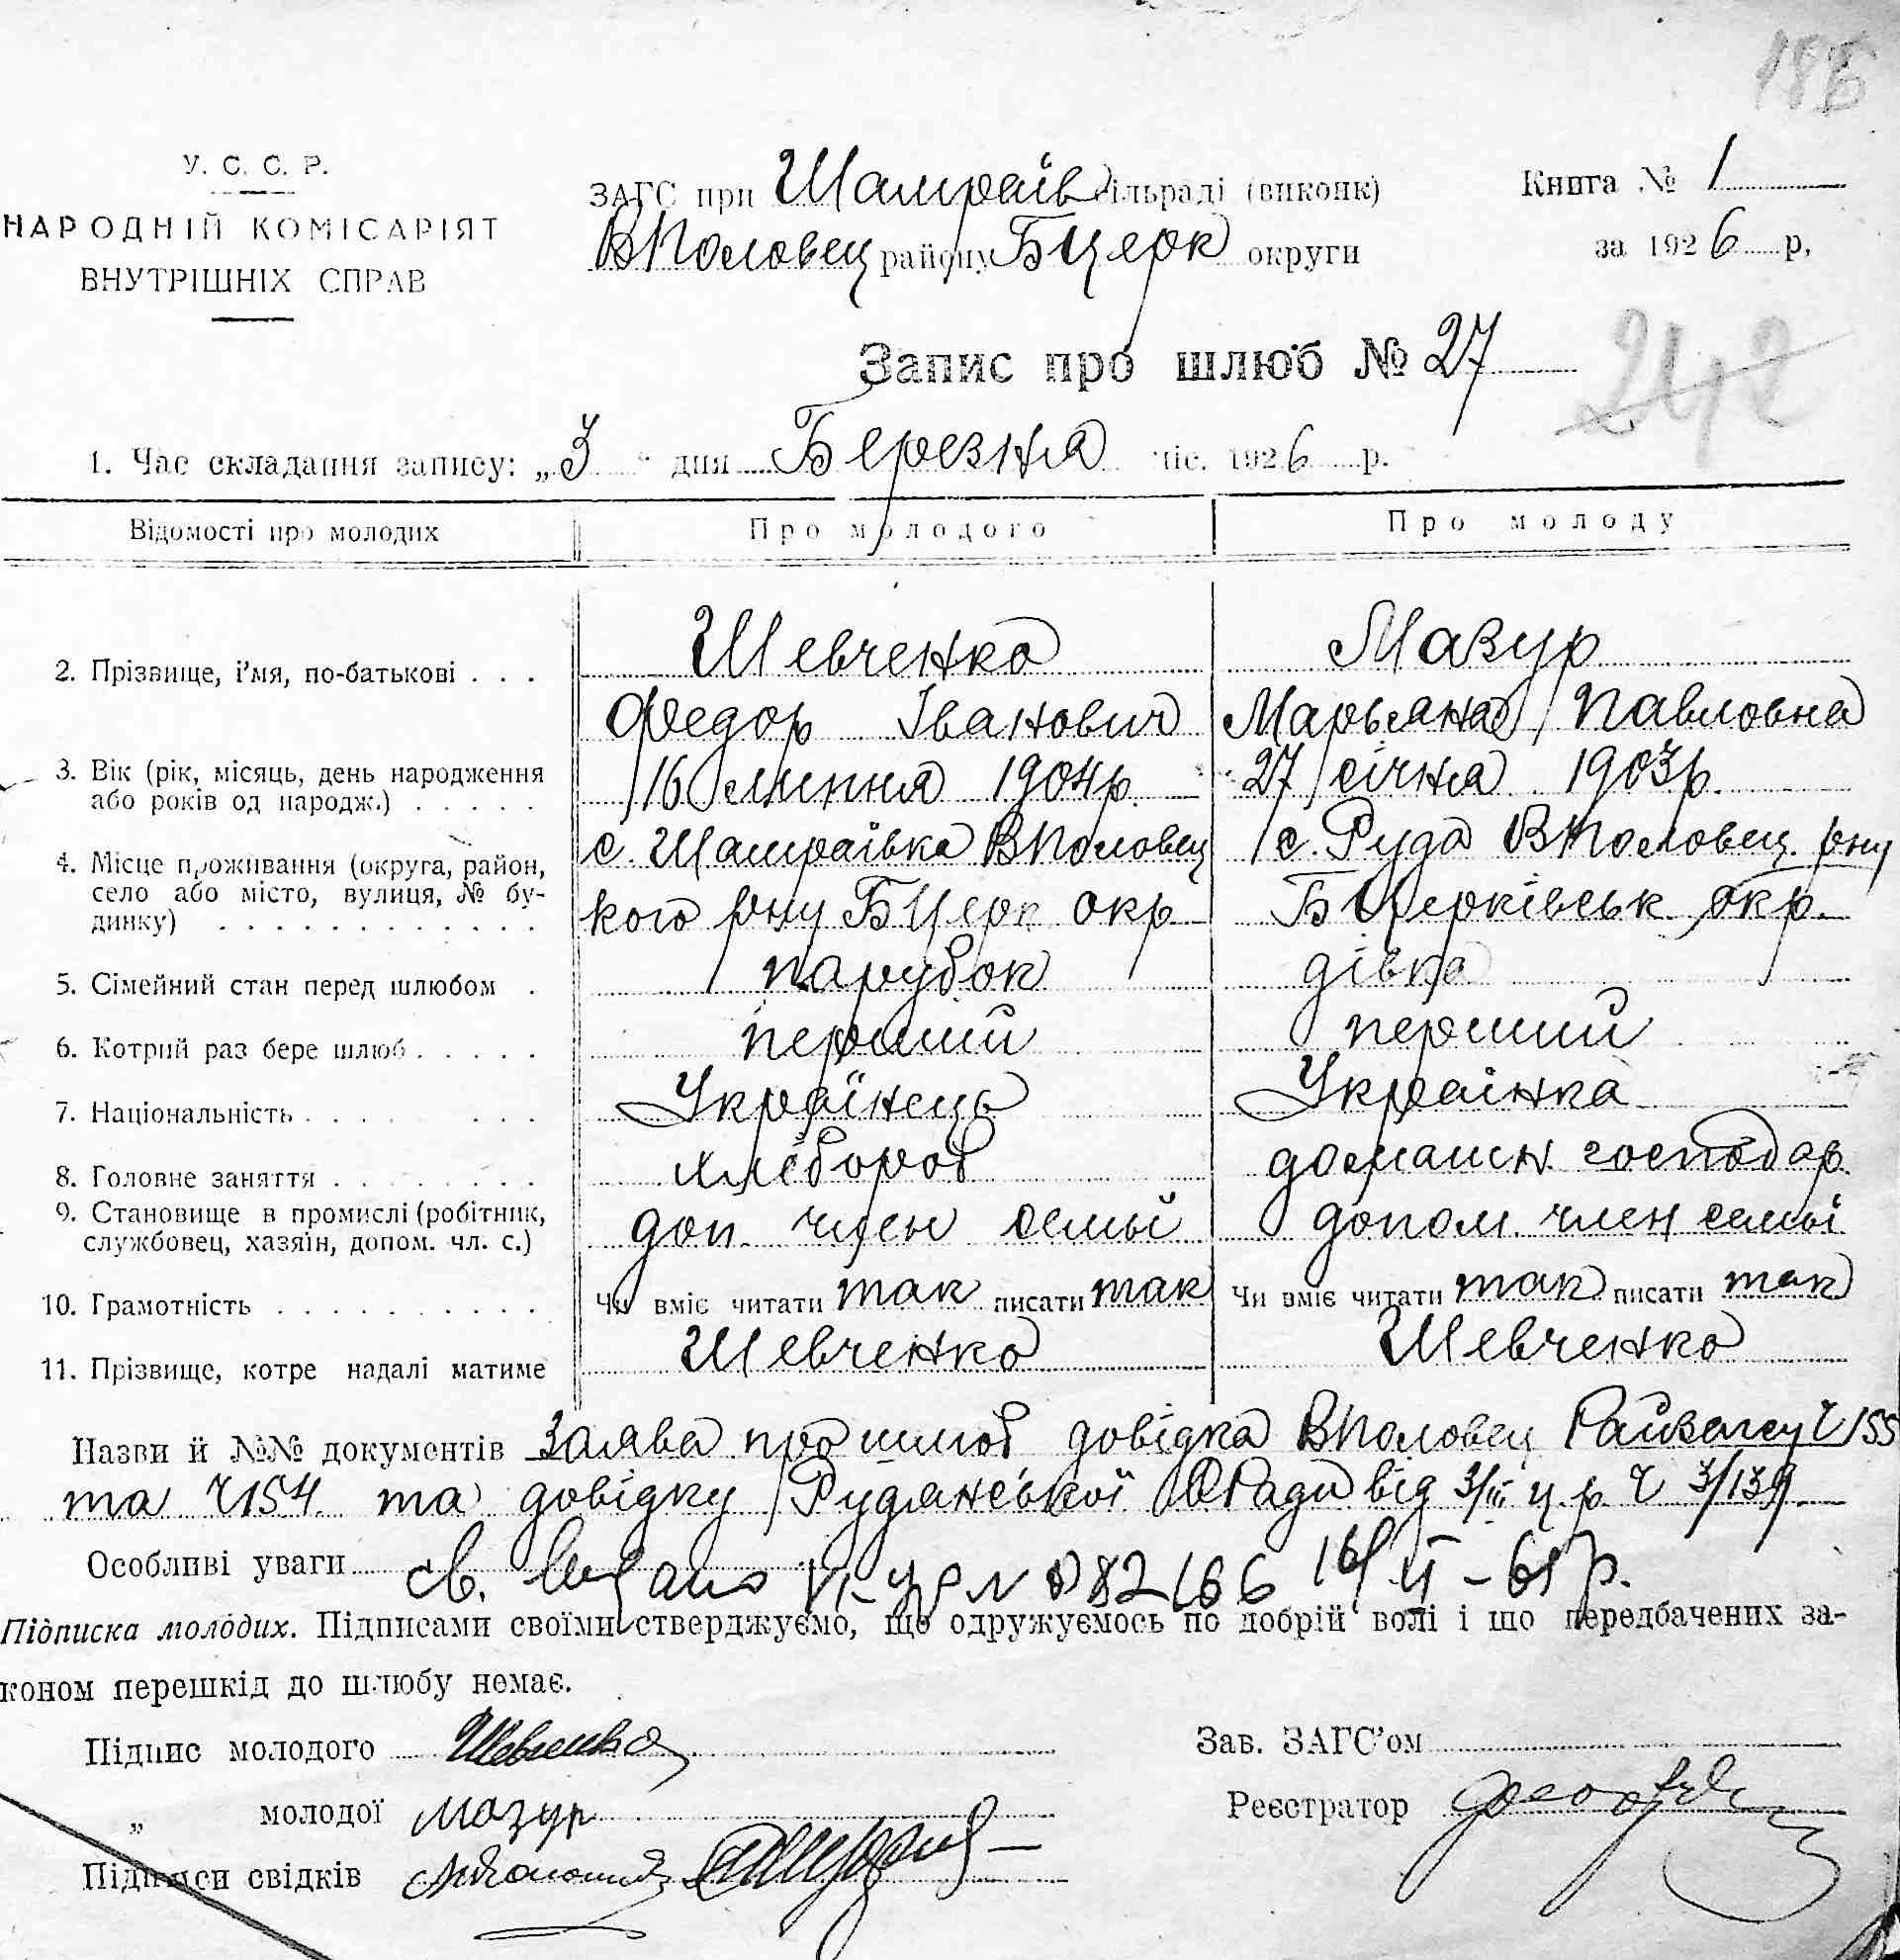 У. С. С. Р.
НАРОДНІЙ КОМІСАРІЯТ
ВНУТРІШНІХ СПРАВ
ЗАГС при Шамраїв сільраді (виконк)
ВПоловец району БЦерк округи
Книга № 1
за 1926 р,
Запис про шлюб № 27
242
1. Час складання запису: „3" дня Березня міс. 1926 р.
Відомості про молодих Про молодого Про молоду
2. Прізвище, і'мя, по-батькові . . . Шевченко Мазур
Федор Іванович Марьяна Павловна
3. Вік (рік, місяць, день народження 16 липня 1904р. 27 січня 1903р.
або років од народж.) . . . . .
4. Місце проживання (округа, район, с. Шамраївка ВПоловец с. Руда ВПоловец. рну
село або місто, вулиця, № бу- кого рну БЦерк окр БЦерківськ окр.
динку) . . . . . . . . . . . .
5. Сімейний стан перед шлюбом . парубок дівка
6. Котрий раз бере шлюб . . . . . перший перший
7. Національність . . . . . . . Українець Українка
8. Головне заняття . . . . . . . . хлібороб домашн. господар.
9. Становище в промислі (робітник, доп. член семьї допом. член семьї
службовец, хазяїн, допом. чл. с.)
10. Грамотність . . . . . . . . . . Чи вміє читати так писати так Чи вміє читати так писати так
11. Прізвище, котре надалі матиме Шевченко Шевченко
Назви й №№ документів Заява про шлюб довідка ВПоловец Райзагсу Ч 155
та Ч154. та довідку Рудянської СРади від 3/ІІІ ц.р. Ч 3/139
Особливі уваги св.
Підписка молодих. Підписами своїми стверджуємо, що одружуємось по добрій волі і що передбачених за-
коном перешкід до шлюбу немає.
Підпис молодого Шевченко
„ молодої Мазур
Підписи свідків
Зав. ЗАГС'ом
Реєстратор